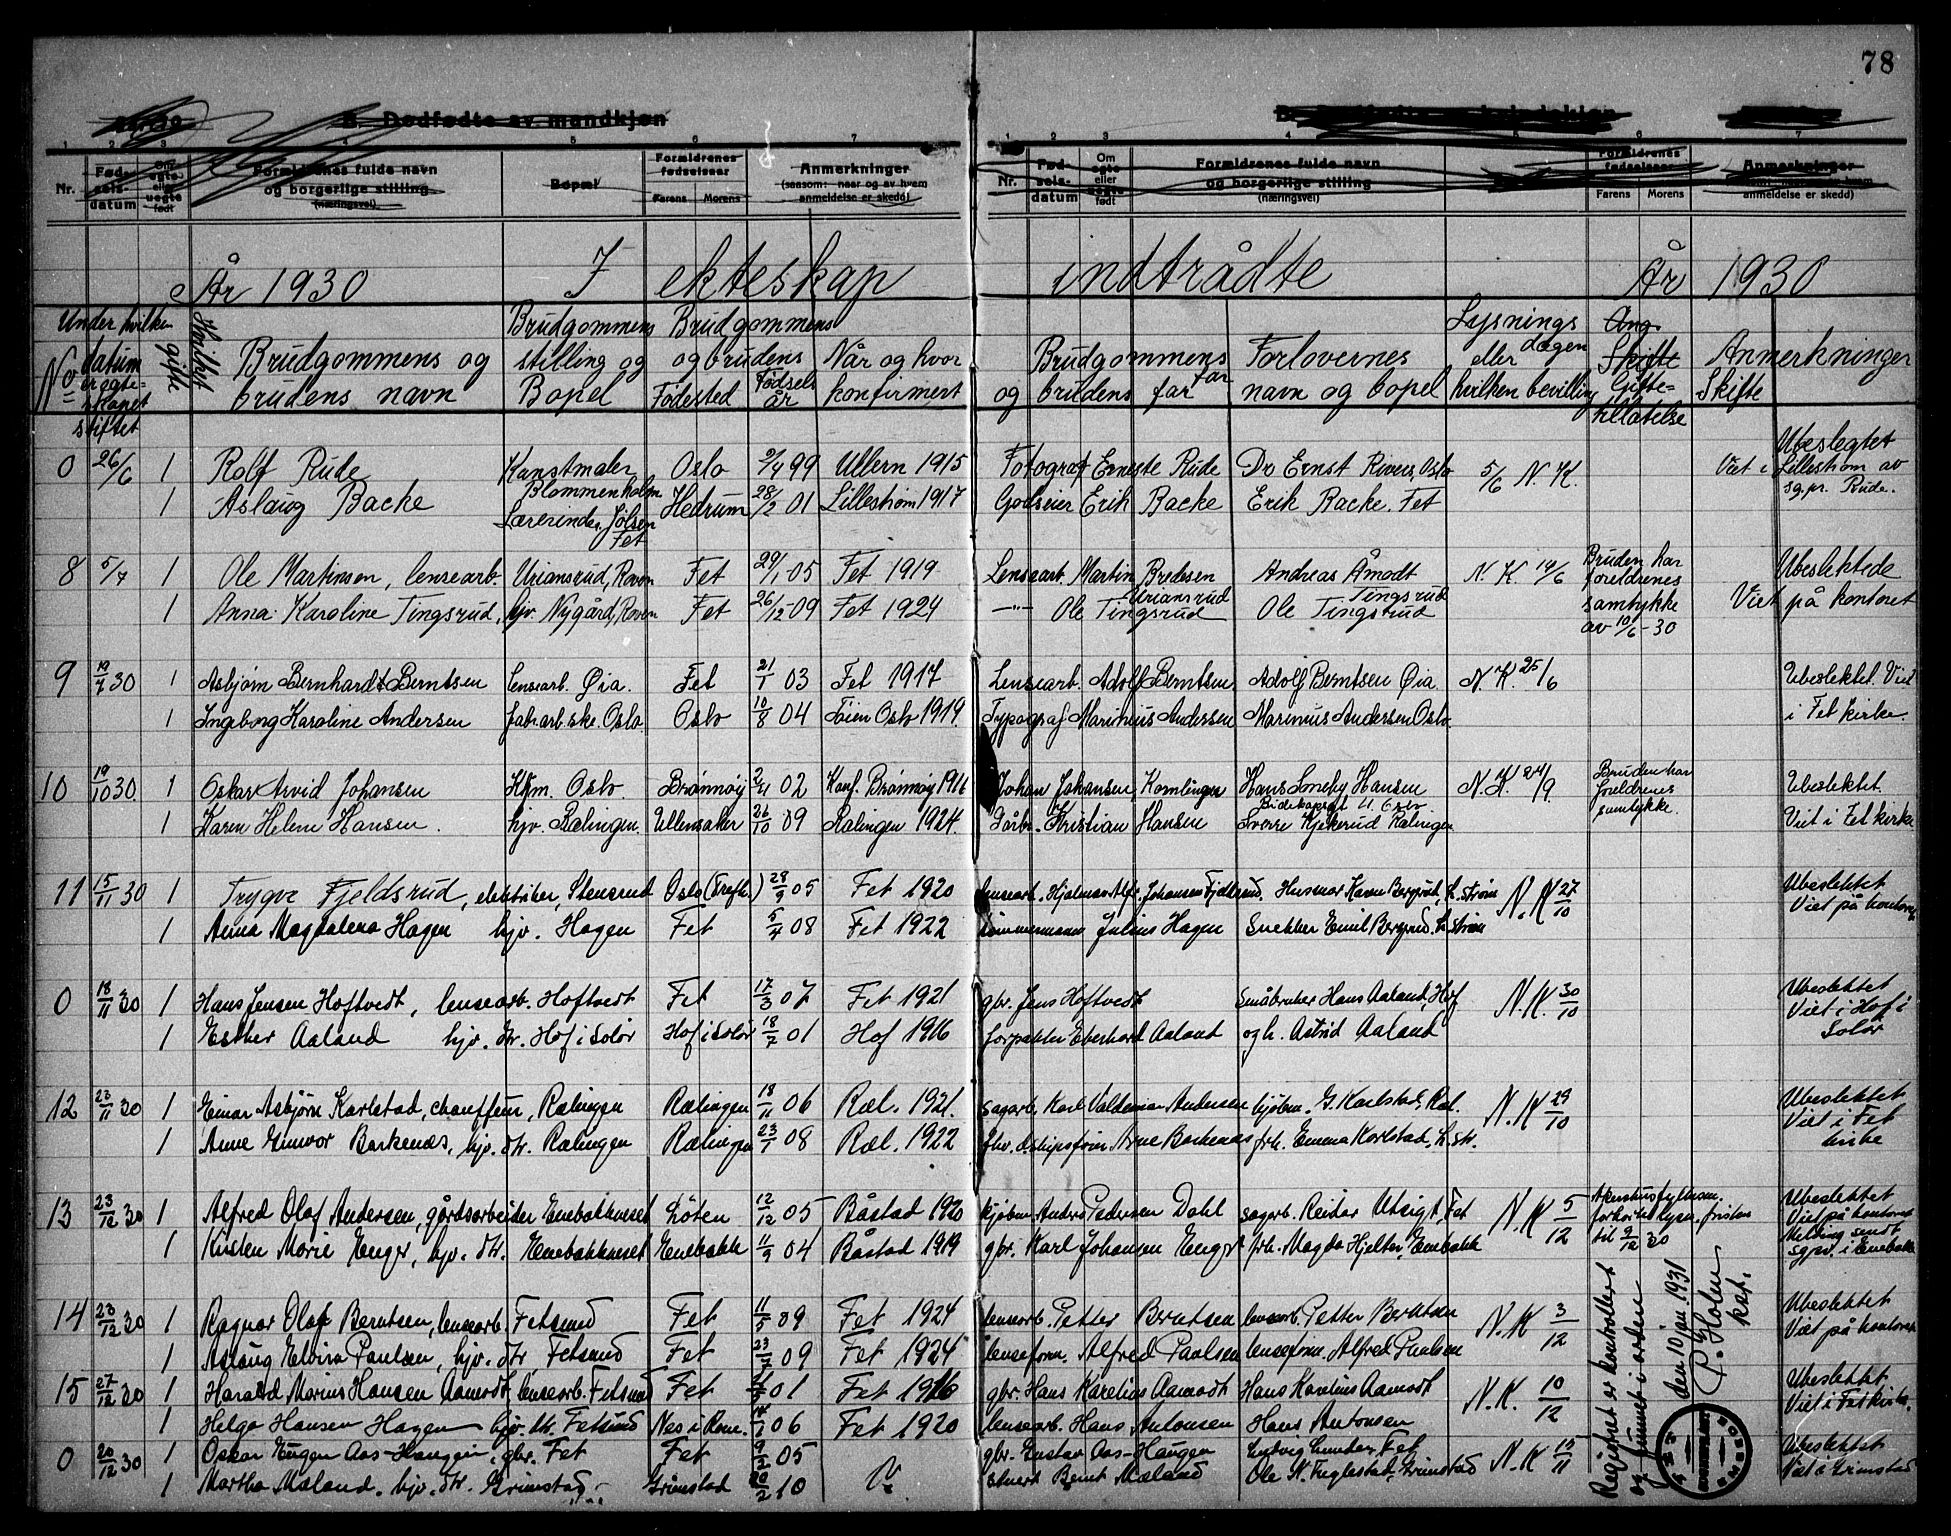 78
B. Dødfødte av mandkjøn
1 2 3 4 5 6 7 1 2 3 4 5 6 7
Nr. Fød-selsdatum Om egte eller uegte født Forældrenes fulde navn og borgerlige stilling (næringsvei) Bopæl Forældrenes fødselsaar Farens Morens Anmerkninger (saasom: naar og av hvem anmeldelse er skedd)
Nr. Fød-selsdatum Om egte eller uegte født Forældrenes fulde navn og borgerlige stilling (næringsvei) Forældrenes fødselsaar Farens Morens Anmerkninger anmeldelse er skedd)
År 1930 I ekteskap indtrådte År 1930
No Under hvilken datum er egteskapet stiftet Hvilket gifte Brudgommens og brudens navn Brudgommens stilling og Bopel Brudgommens og brudens Fødested Fødsels år Når og hvor konfirmert Brudgommens far og brudens far Forlovernes navn og bopel Lysnings dagen eller hvilken bevilling Ang. Skifte Gifte-tillatelse Skifte Anmerkninger
0 26/6 1 Rolf Rude Kunstmaler Blommenholm Oslo 2/4 99 Ullern 1915 Fotograf Erneste Rude Dr Ernst Oslo 5/6 N. K. Ubeslegtet Viet i Lillestrøm av sg.pr. Rude.
1 Aslaug Backe Lærerinde, Jølsen Fet Hedrum 28/2 01 Lillestrøm 1917 Godseier Erik Backe Erik Backe. Fet
8 5/7 1 Ole Martinsen, lensearb. Uriansrud, Roven Fet 29/1 05 Fet 1919 Lensearb. Martin Bredesen Uriansrud Andreas Åmodt Tingsrud N. K. 19/6 Bruden har foreldrenes samtykke av 10/6-30 Ubeslektede Viet på kontoret
1 Anna Karoline Tingsrud, hjv. Nygård, Roven Fet 26/12 09 Fet 1924 —"— Ole Tingsrud Ole Tingsrud
9 19/7 30 1 Asbjørn Bernhardt Berntsen lensearb. Øia. Fet 21/1 03 Fet 1917 Lensearb. Adolf Berntsen Adolf Berntsen Øia N. K. 25/6 Ubeslektet. Viet i Fet kirke.
1 Ingeborg Karoline Andersen fabarb.ske. Oslo. Oslo 10/8 04 Tøien Oslo 1919 Typograf Marinius Andersen Marinius Andersen Oslo.
10 19/10 30. 1 Oskar Arvid Johansen Kjm. Oslo. Brønnøy 2/11 02 Konf. Brønnøy 1916 Johan Johansen, Hans Hansen N. K. 24/9. Bruden har foreldrenes samtykke. Ubeslektet. Viet i Fet kirke
1 Karen Helene Hansen. hjv. Rælingen. Ullensaker 26/10 09 Rælingen 1924. Gårbr. Kristian Hansen Sverre Kjekerud Rælingen
11 15/11 30 1 Trygve Fjeldsrud, elektriker, Stensrud Oslo (Trefk.) 28/9 05 Fet 1920 lensearb. Hjalmar Alfr. Johansen Fjeldsrud. Husmor Karen Bergrud, L.strøm N. K 27/10 Ubeslektet Viet på kontoret
1 Anna Magdalena Hagen hjv. Hagen Fet 5/4 08 Fet 1922 tømmermann Julius Hagen Snekker Emil Bergrud. L.strøm
0 18/11 30 1 Hans Jensen Hoftvedt, lensearb. Hoftvedt Fet 17/3 07 Fet 1921 gbr. Jens Hoftvedt Småbruker Hans Aaland, Hof N. K. 30/10 Ubeslektet Viet i Hof i Solør
1 Esther Aaland hjv. dtr. Hof i Solør Hof i Solør 18/7 01 Hof 1916 forpakter Eberhard Aaland og h. Astrid Aaland
12 23/11 30 1 Einar Asbjørn Karlstad, chauffeur, Rælingen Rælingen 18/11 06 Ræl. 1921. sagarb. Karl Valdemar Andersen kjøbm. G. Karlstad, Ræl. N. K 29/10 Ubeslektet Viet i Fet kirke
1 Anne Gunvor Barkenæs, hjv. dtr. Rælingen Rælingen 23/1 08 Ræl. 1922 Arne Barkenæs frk. Emma Karlstad, L.str.
13 23/12 30 1 Alfred Olaf Andersen, gårdsarbeider Enebakkneset Løten 12/12 05 Båstad 1920 kjøbm. Anders Pedersen Dahl sagarb. Reidar Utsigt, Fet N. K 5/12 Akershus fylkesm. forkortet lysn. fristen til 9/12 30 Ubeslektet Viet på kontoret Melding sendt sgpr. i Enebakk
1 Kirsten Marie Enger, hjv. dtr. Enebakkneset Enebakk 11/9 04 Båstad 1919 gbr. Karl Johansen Enger frk. Magda Hjelter, Enebakk
14 23/12 30 1 Ragnar Olaf Berntsen, lensearb. Fetsund Fet 11/5 09 Fet 1924 lensearb. Petter Berntsen lensearb. Petter Berntsen N. K 3/12 Ubeslektet Viet på kontoret
1 Aslaug Elvira Paulsen, hjv. dtr. Fetsund Fet 09 Fet 1924 lenseform. Alfred Paulsen lenseform. Alfred Paulsen
15 27/12 30 1 Harald Marius Hansen Aamodt, lensearb. Fetsund Fet 01 Fet 1916 gbr. Hans Karelius Aamodt Hans Karelius Aamodt N. K. 10/12 Ubeslektet Viet i Fet kirke.
1 Helga Hansen Hagen hjv. dtr. Fetsund Nes i Rome. 06 Fet 1920 lensearb. Hans Antonsen Hans Antonsen
0 20/12 30 1 Oskar Eugen Aas-Haugen, gbr. Fet Fet 05 gbr. Gustav Aas-Haugen Ludvig Lunder, Fet N. K 15/11 Ubeslektet Viet i Grimstad
1 Martha Maland. hjv. dtr. Grimstad Grimstad 10 Bernt Maland Ole N. Fuglestad, Grimstad
Registeret er kontrollert og funnet i orden
FET den 10 jan. 1931
P. Holm
kap.